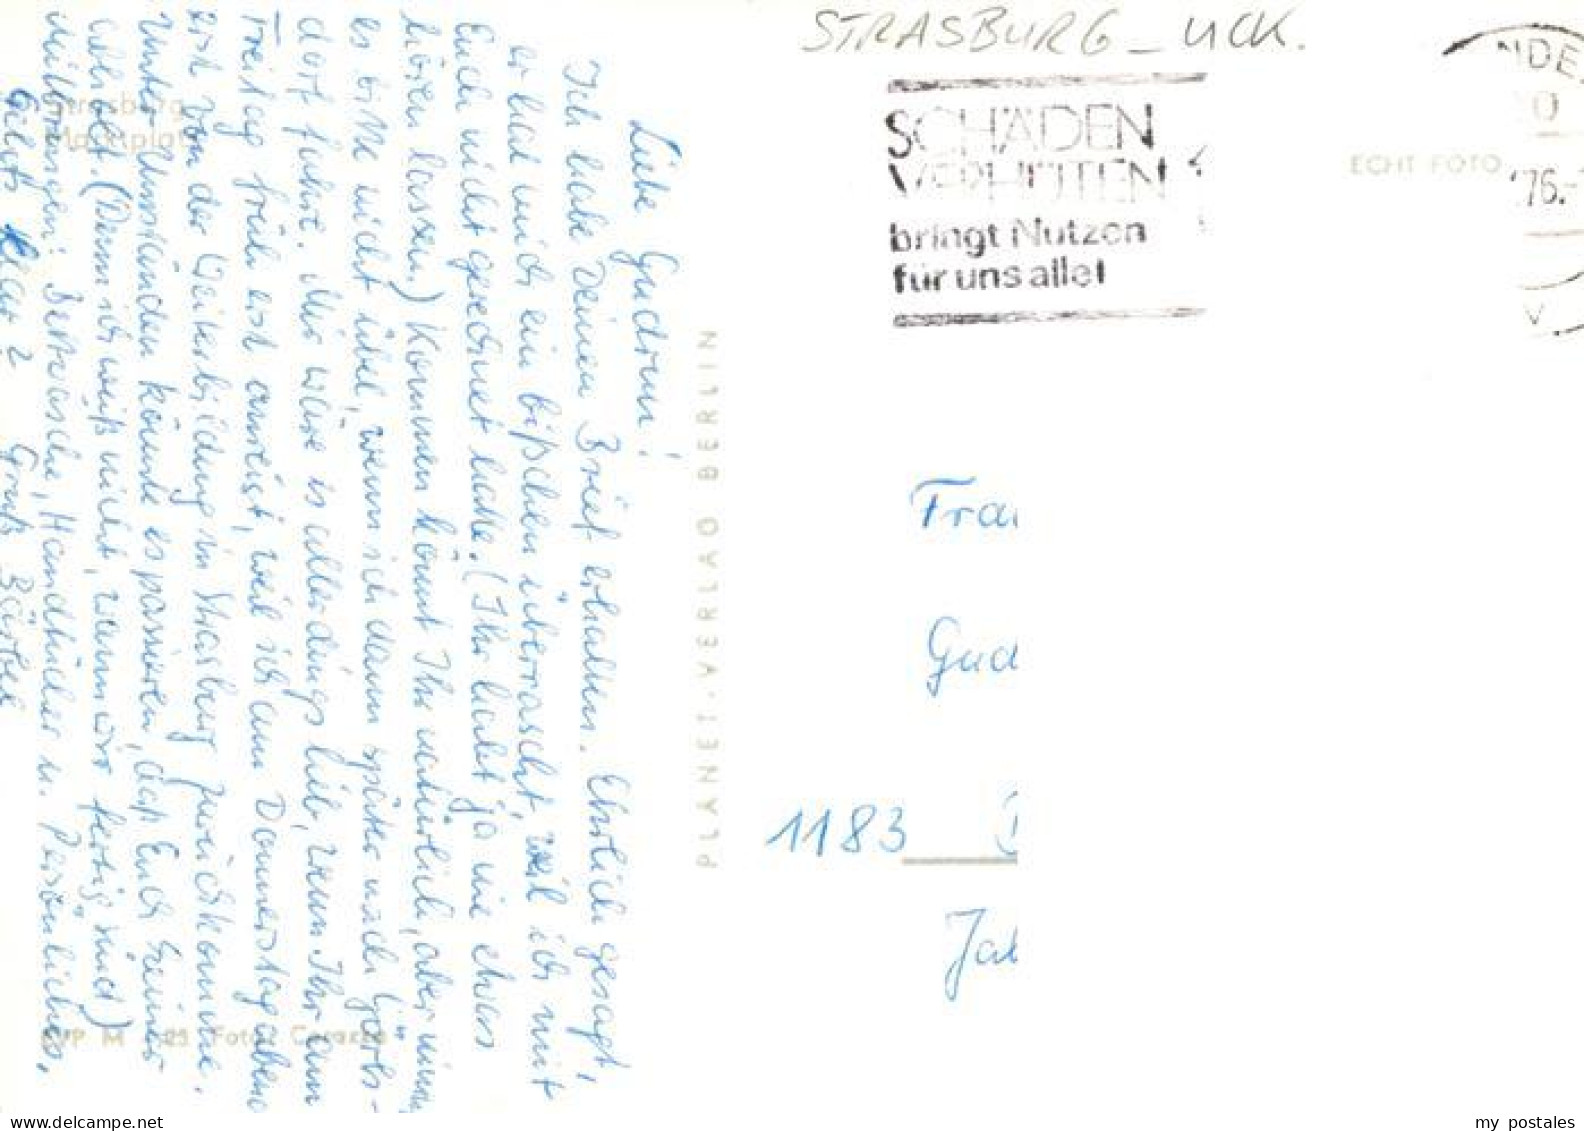 STRASBURG - UCK.
SCHÄDEN
VERHÜTEN
bringt Nutzen
für uns alle!
NDE
76.-
V
ECHT FOTO
Strasburg
Marktplatz
Liebe Gudrun!
Ich habe Deinen Brief erhalten. Ehrlich gesagt,
er hat mich ein bißchen überrascht, weil ich mit
Euch nicht gerechnet hatte. (Ihr habt ja nie etwas
hören lassen.) Kommen könnt Ihr natürlich, aber nimm
es bitte nicht übel, wenn ich dann später nach
dort fahre. Mir wäre es allerdings lieb, wenn Ihr am
Freitag früh erst anreist, weil ich am Donnerstag abend
erst von der Weiterbildung in Strasburg zurückkomme.
Unter Umständen könnte es passieren, daß Euch keiner
abholt. (Denn ich weiß nicht, wann wir fertig sind)
Mitbringen: Bettwäsche, Handtücher u. Persönliches.
Gehts klar? Gruß Bärbel
PLANET-VERLAG BERLIN
Frau
Gud
1183
Jah
VP M 25 Foto: Corazza
my postales